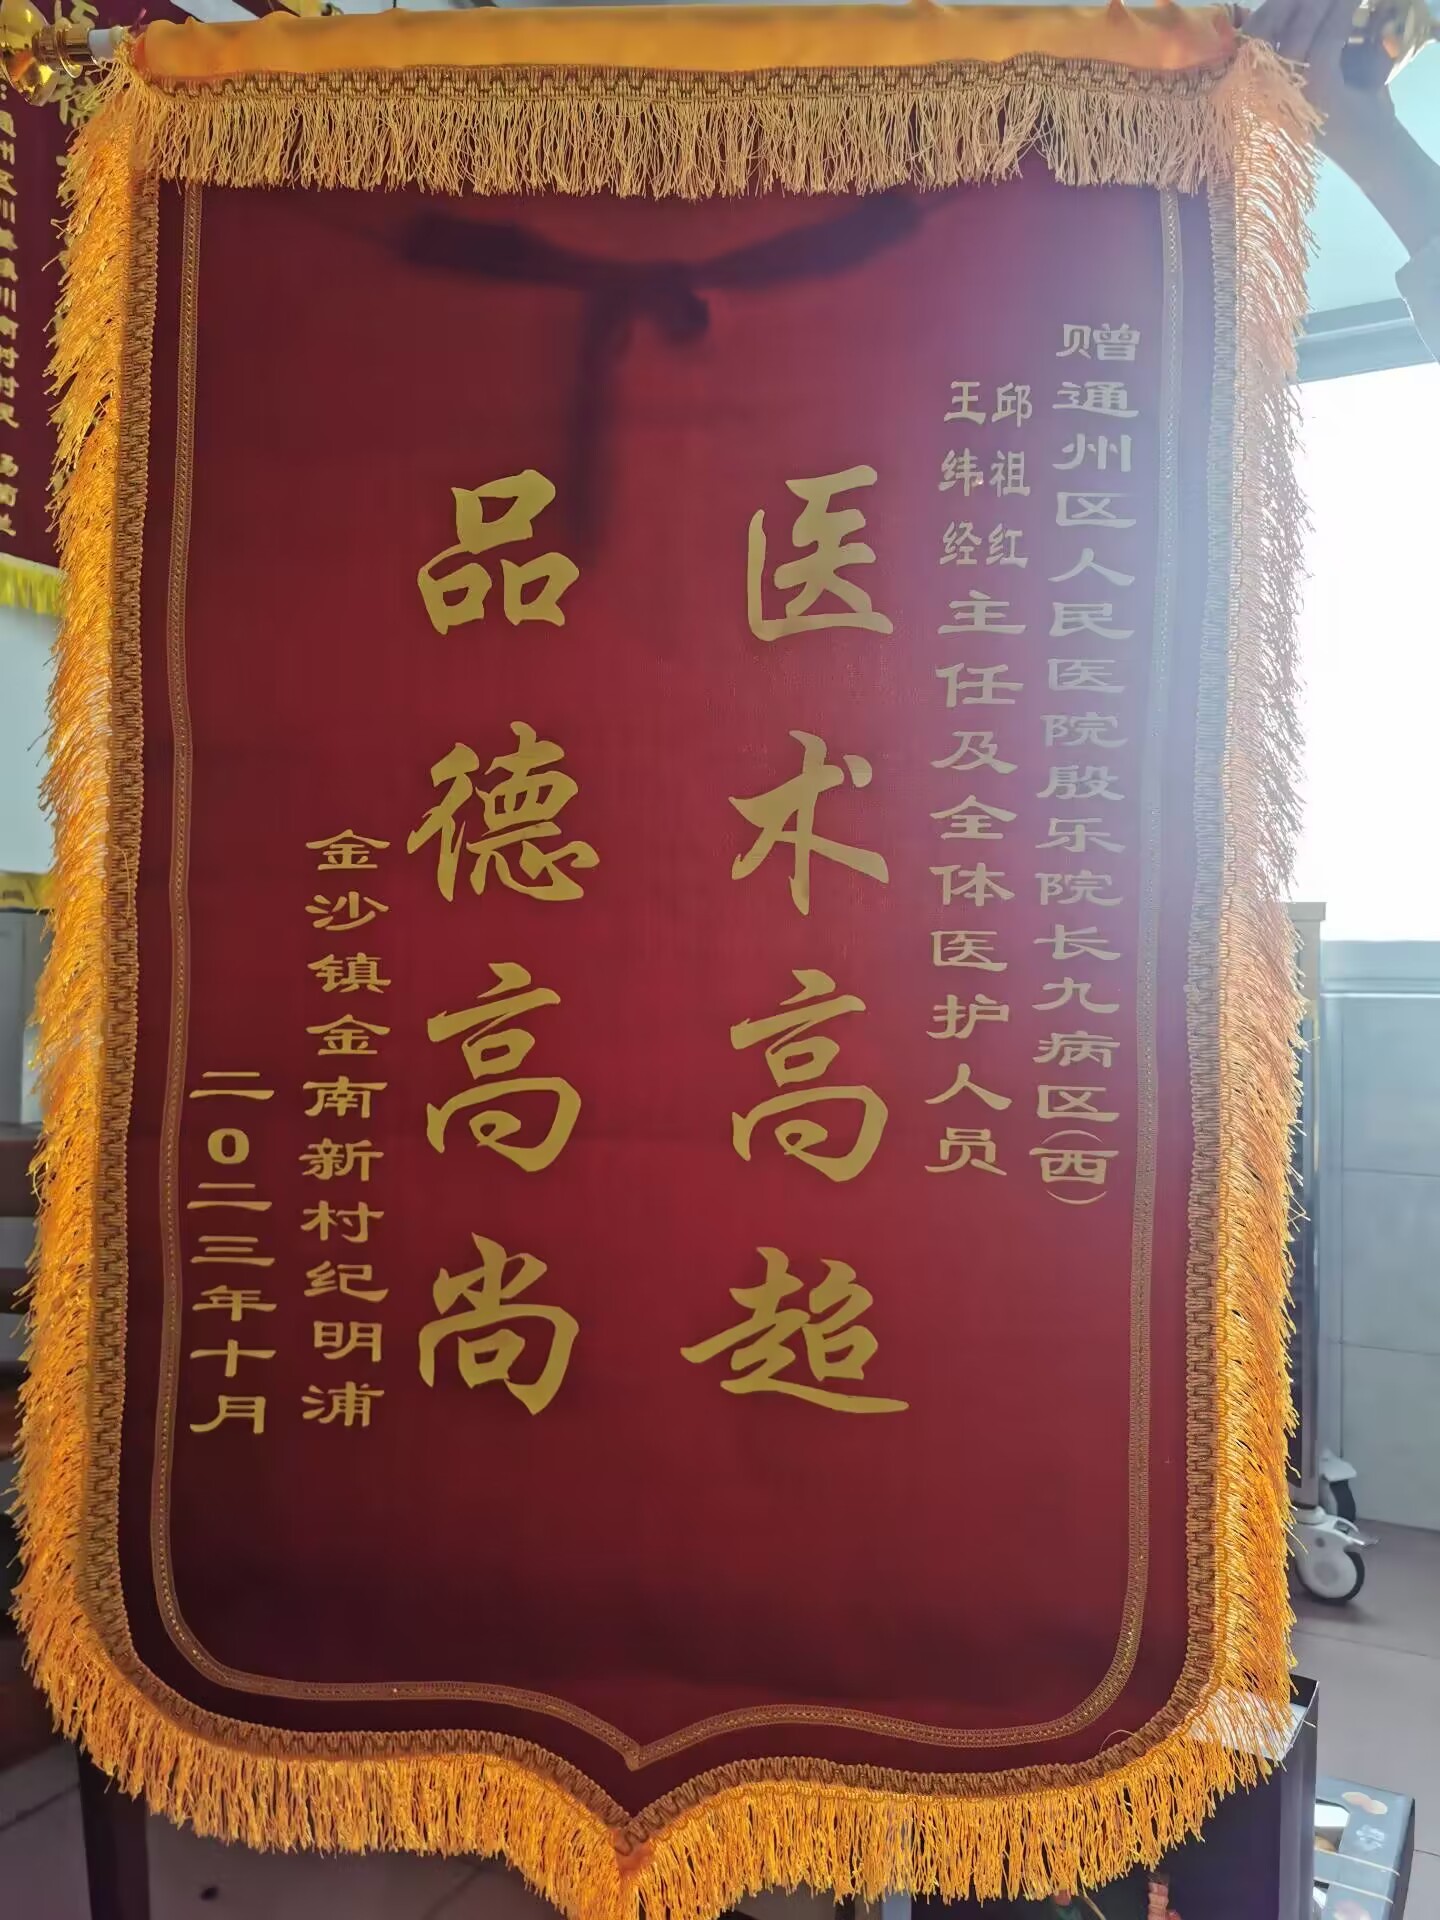 赠通州区人民医院殷乐院长九病区(西)
邱祖红
王纬经
主任及全体医护人员
医术高超
品德高尚
金沙镇金南新村纪明浦
二0二三年十月